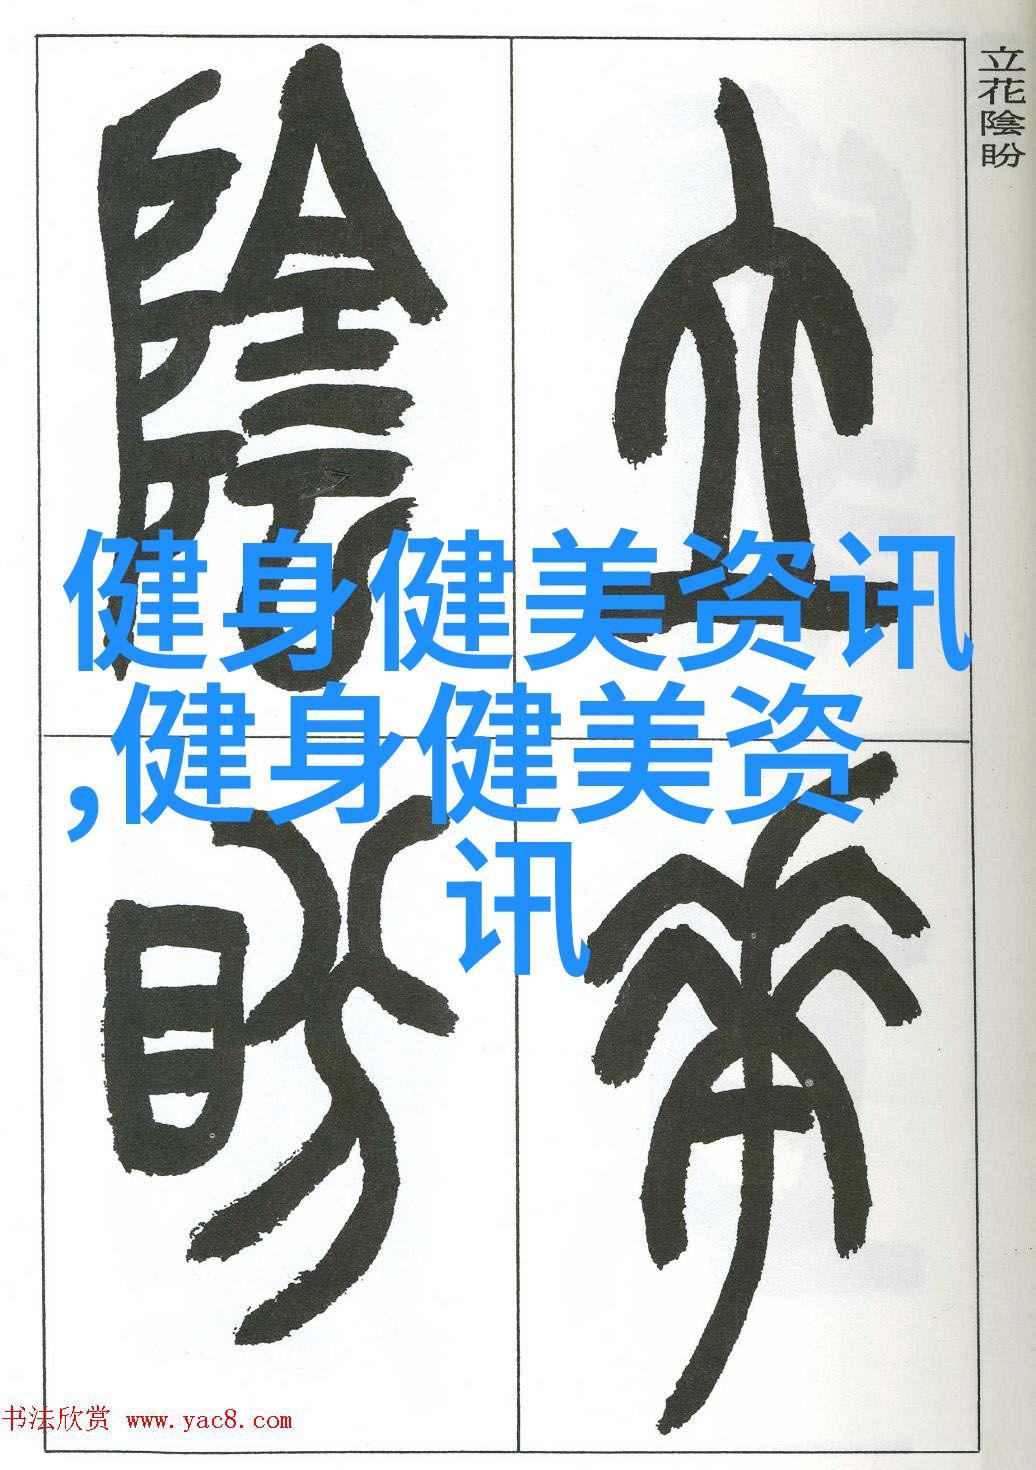 立花陰盼
立花
陰盼
健身健美资讯
,健身健美资
讯
书法欣赏 www.yac8.com